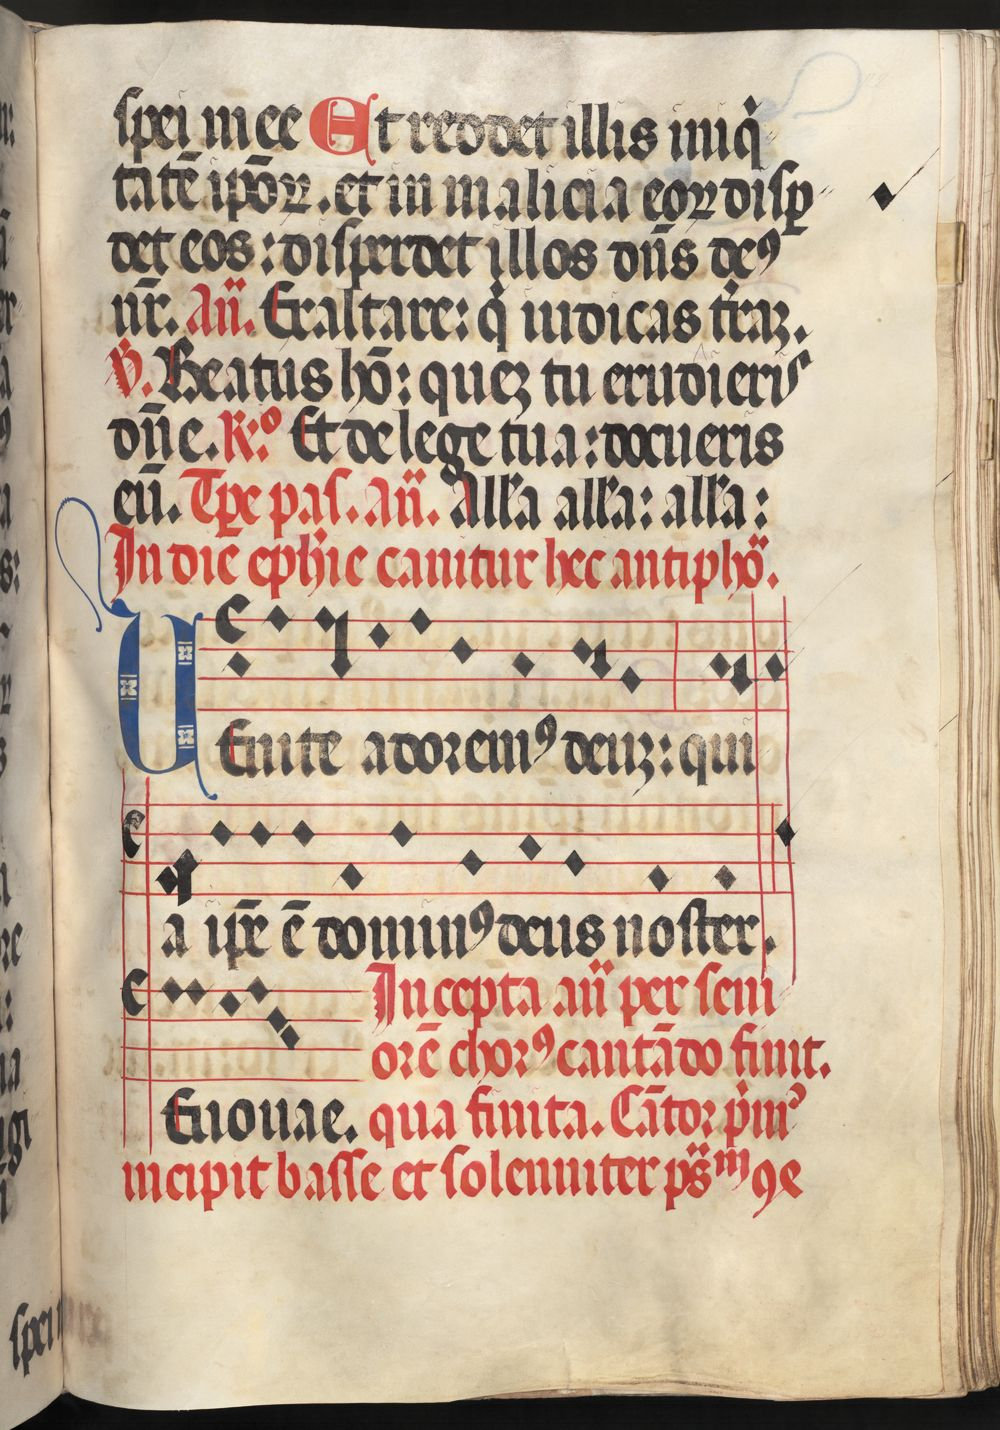 spei mee Et reddet illis iniq̇
tatē ipōꝝ. et in malicia eoꝝ disꝑ
det eos: disperdet illos dn̄s deꝰ
nr̄. Añ. Exaltare: q̇ iudicas t̄raʒ.
℣. Beatus hō: queʒ tu erudieris
dn̄e. R.º Et de lege tua: docueris
eū. Tꝑe pas. Añ. Alla alla: alla:
In die ephīe canitur hec antiphō.
Uenite adoremꝰ deuʒ: qui
a ip̄e ē dominꝰ deus noster.
Incepta añ per seni
orē chorꝰ cantādo finit.
Euouae. qua finita. Cātor pim̄ꝰ
incipit basse et solenniter ps̄m
spei